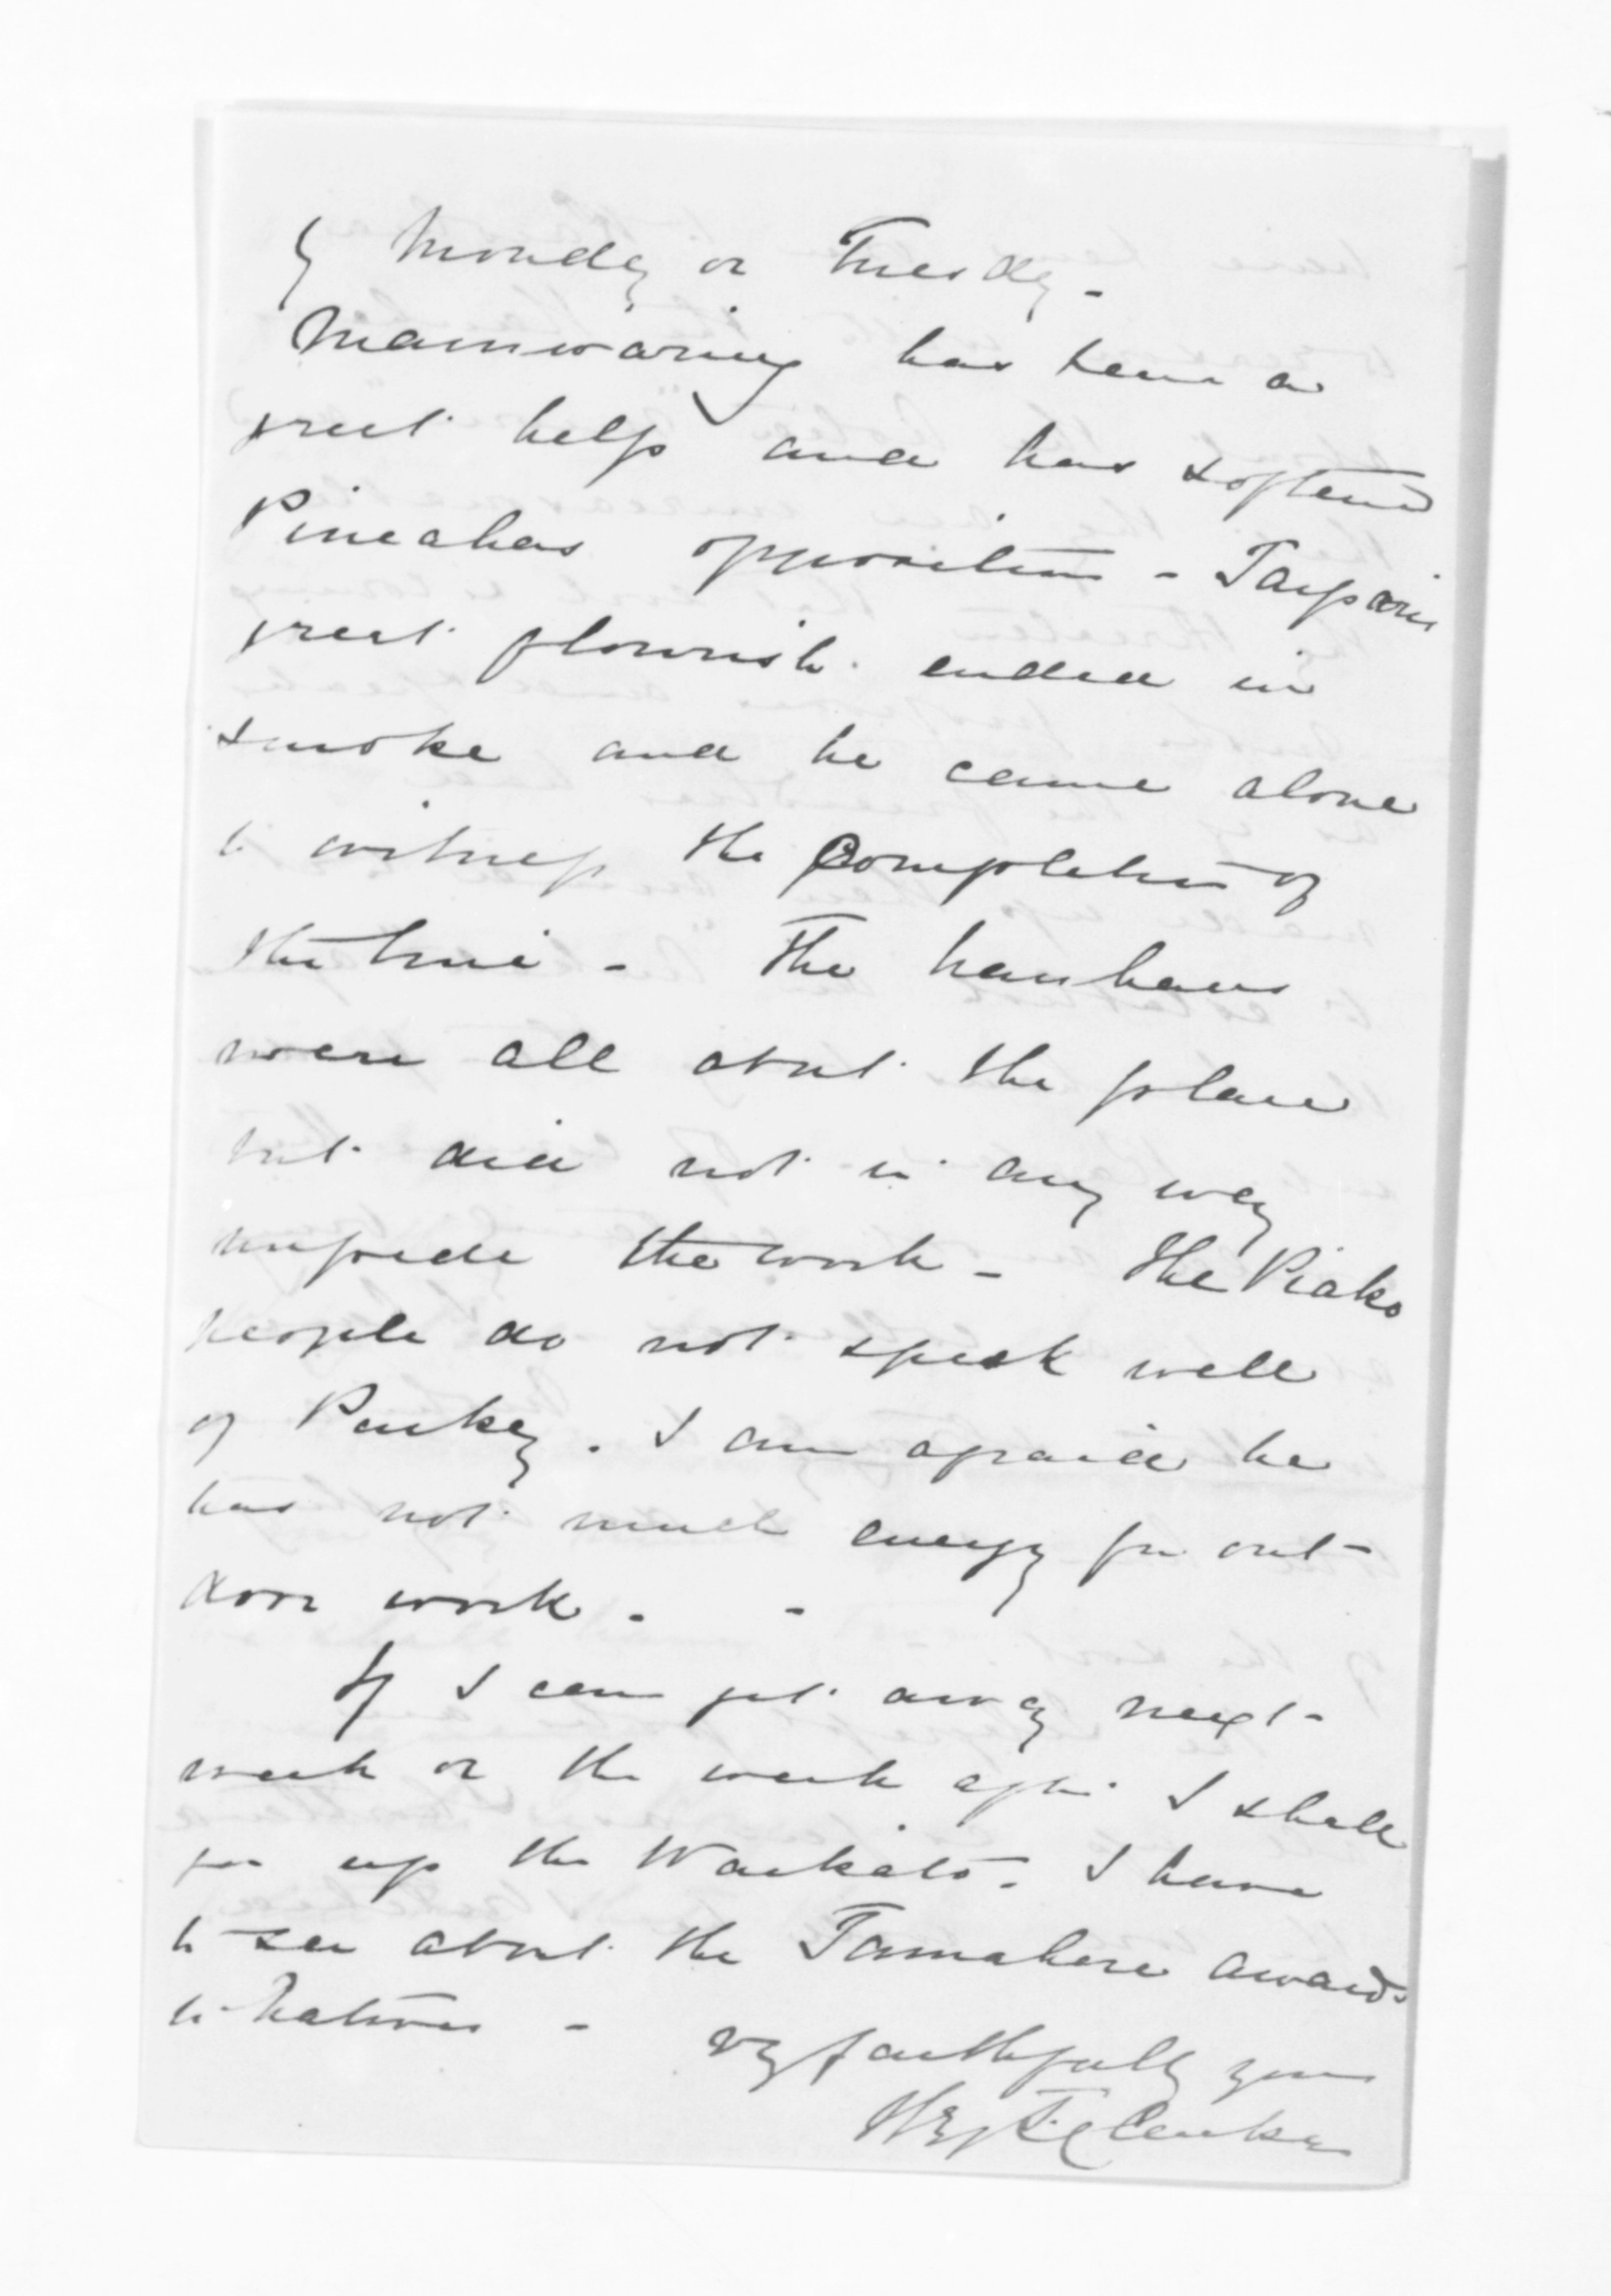 by Monday or Tuesday -
Mainwaring has been a
great help and has softened
Pineahas opposition - Taipari
great flourish ended in
smoke and he came alone
to witness the completion of
the line - The hauhaus
were all about the place
but did not in any way
impede the work - The Piako
people do not speak well
of Puckey. I am afraid he
has not much energy for out-
door work. -
If I can get away next
week or the week after I shall
go up the Waikato - I have
to see about the Tamahere awards
to Natives - vy faithfully yours
Hy T Clarke